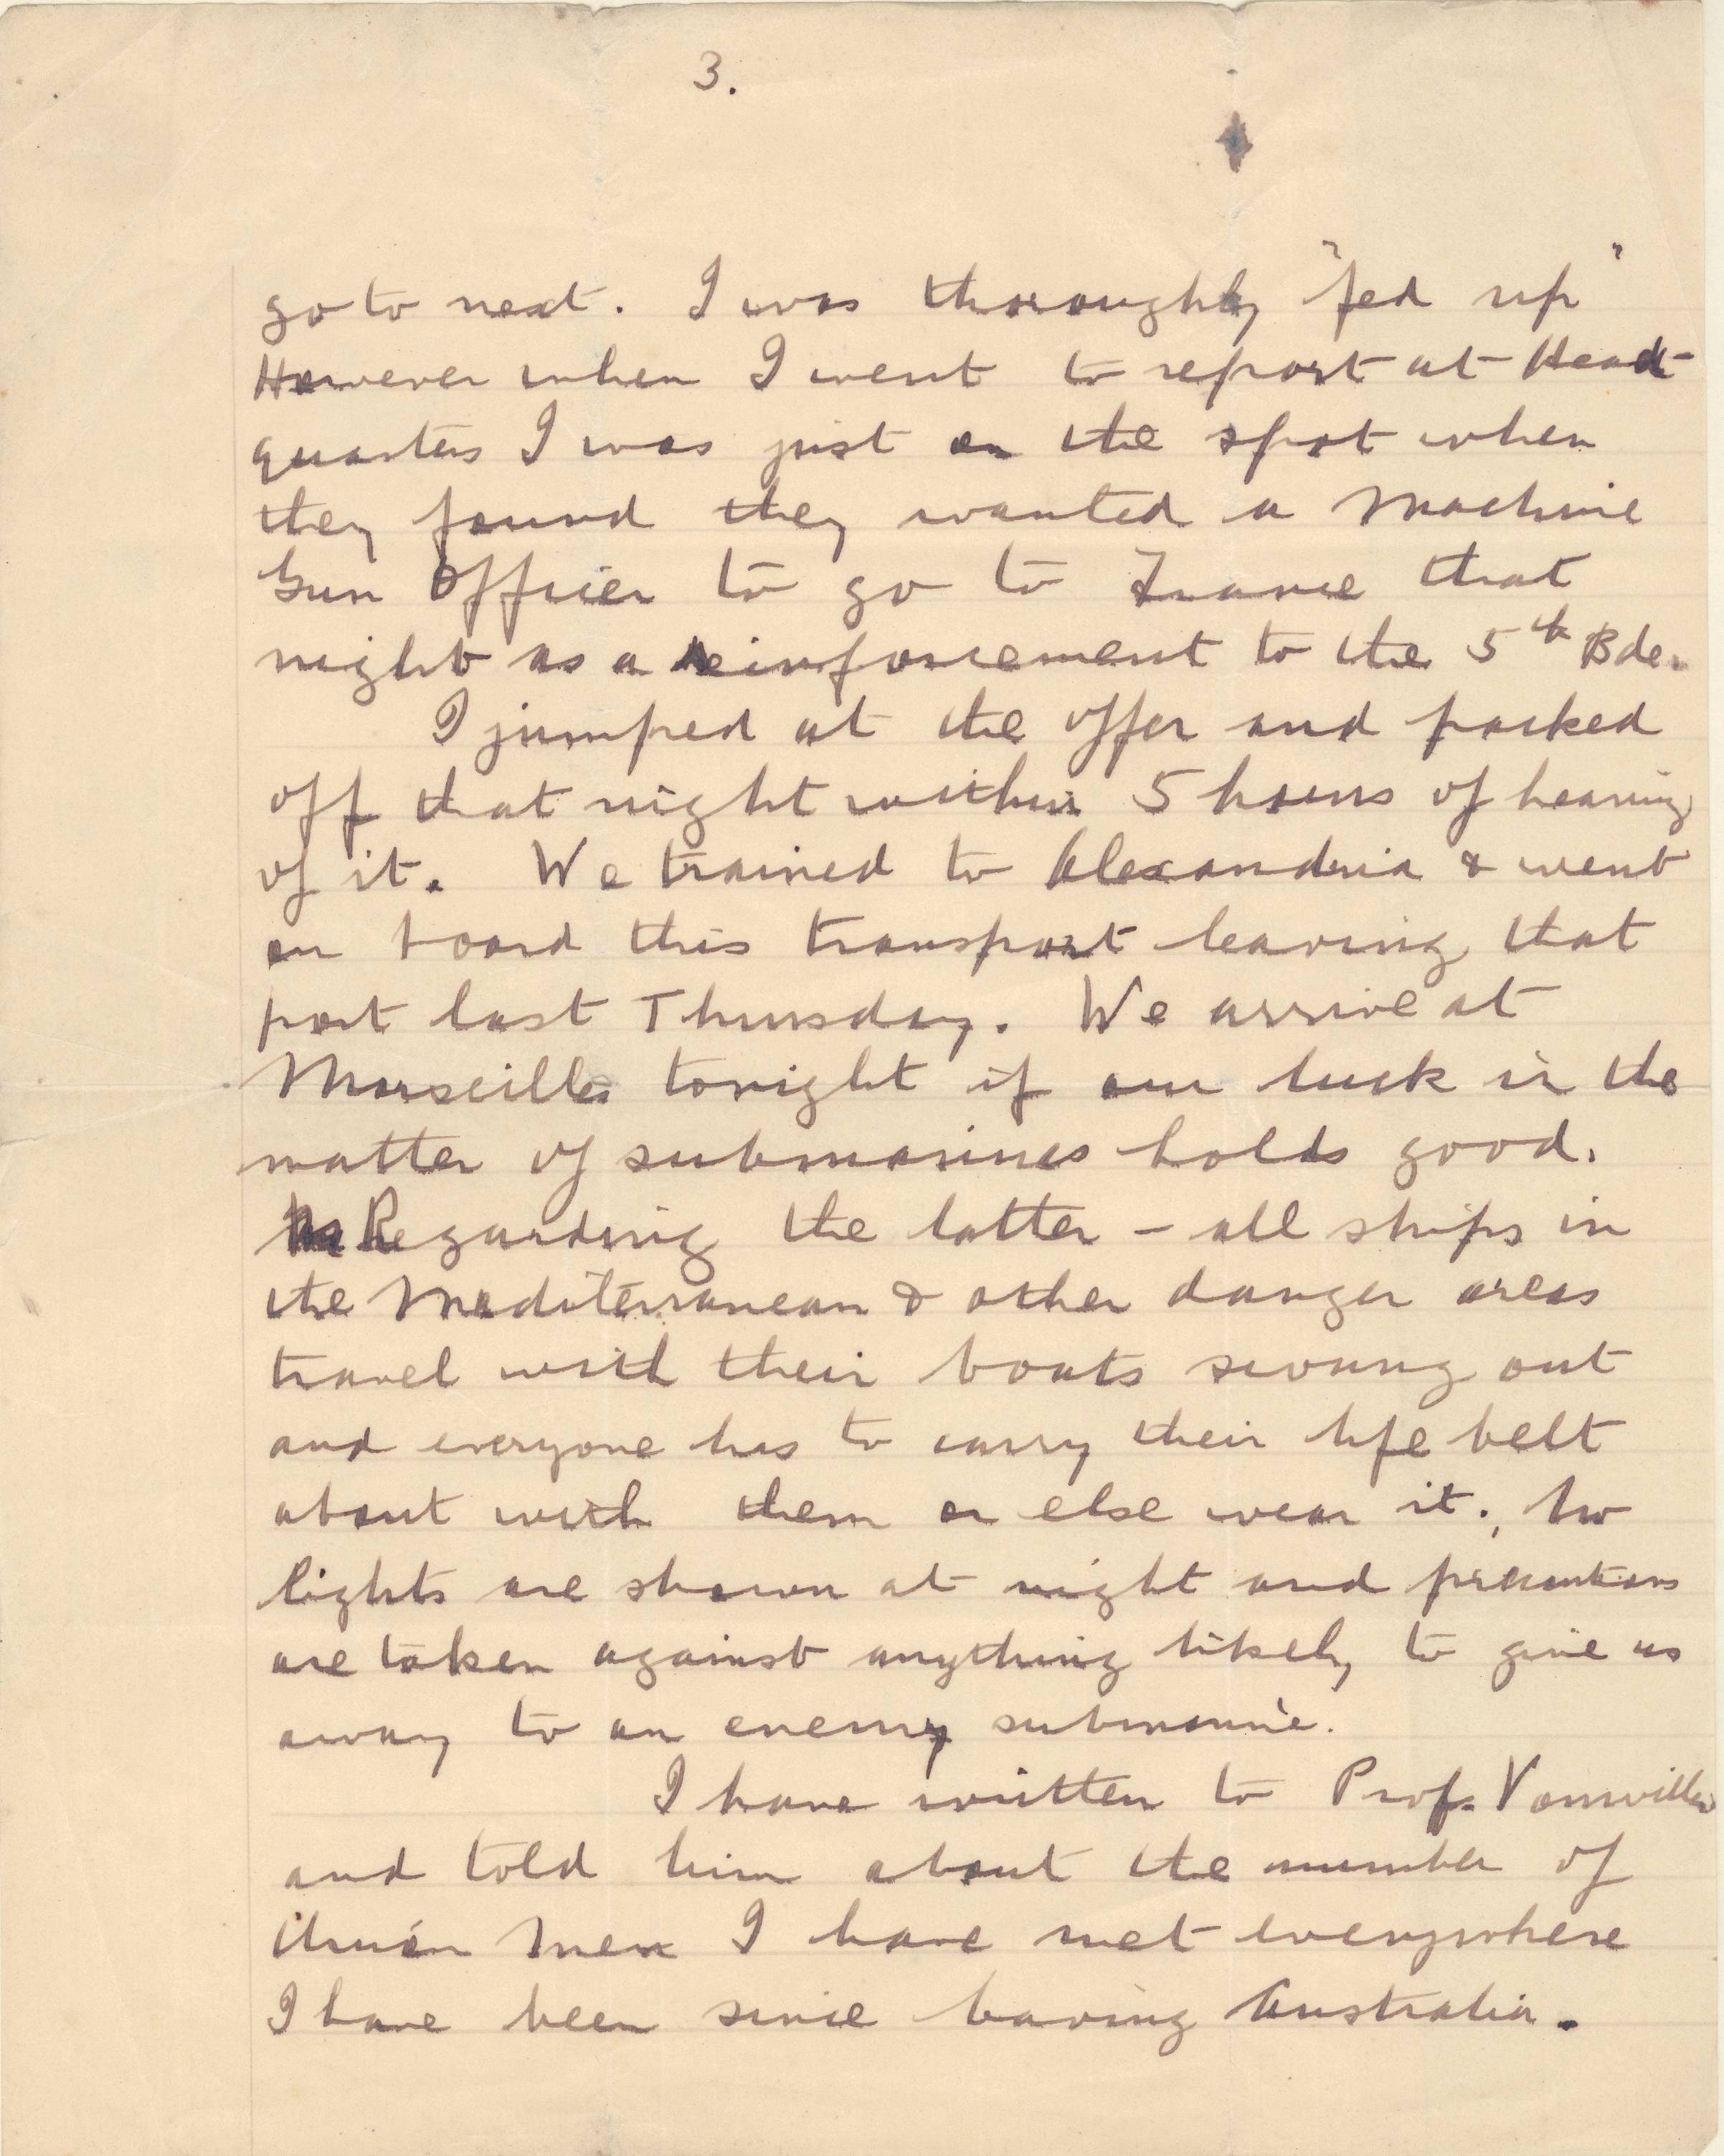 3.
go to next. I was thoroughly "fed up"
However when I went to report at Head-
quarters I was just on the spot when
they found they wanted a Machine
Gun Officer to go to France that
night as a reinforcement to the 5th Bde.
I jumped at the offer and packed
off that night within 5 hours of hearing
of it. We trained to Alexandria & went
on board this transport leaving that
port last Thursday. We arrive at
Marseilles tonight if our luck in the
matter of submarines holds good.
Regarding the latter - all ships in
the Mediterranean & other danger areas
travel with their boats swung out
and everyone has to carry their life belt
about with them or else wear it. No
lights are shown at night and precautions
are taken against anything likely to give us
away to an enemy submarine.
I have written to Prof. Vonwiller
and told him about the number of
Union men I have met everywhere
I have been since leaving Australia.